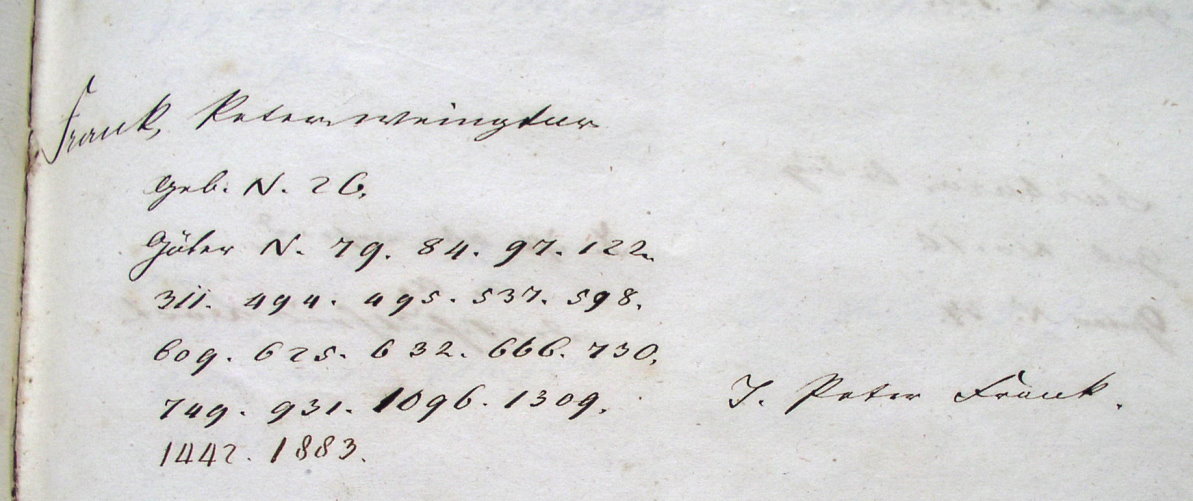 Frank, Peter, Weingtnr
Geb. N. 26.
Güter N. 79. 84. 97. 122.
311. 494. 495. 537. 598.
609. 625. 632. 666. 730.
749. 931. 1096. 1309.
J. Peter Frank.
1442. 1883.